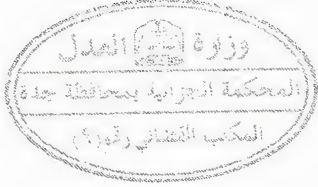 وزارة العدل
المحكمة الجزائية بمحافظة جدة
المكتب القضائي رقم